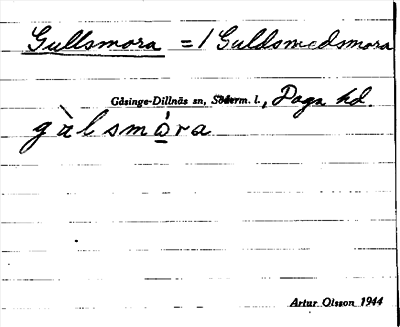 Gullsmora = / Guldsmedsmora
Gåsinge-Dillnäs sn, Söderm. l., Daga hd.
gùlsmó̱ra
Artur Olsson 1944